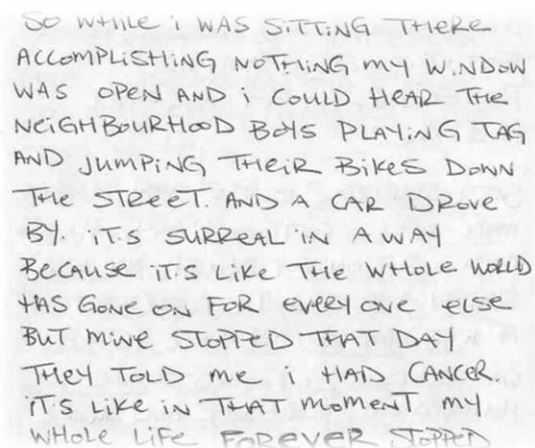 SO WHILE i WAS SiTTiNG THERE
ACCOMPLiSHiNG NOTHiNG my WiNDOW
WAS OPEN AND i COULD HEAR THE
NEiGHBOURHOOD BOYS PLAYiNG TAG
AND JUMPiNG THEiR BiKES DOWN
THE STREET. AND A CAR DROVE
BY. iT'S SURREAL IN A WAY
BECAUSE iT'S LiKE THE WHOLE WORLD
HAS GONE ON FOR EVERYONE ELSE
BUT MiNE STOPPED THAT DAY
THEY TOLD me i HAD CANCER
iT'S LiKE iN THAT MOMENT MY
WHOLE LiFE FOREVER STOPPED